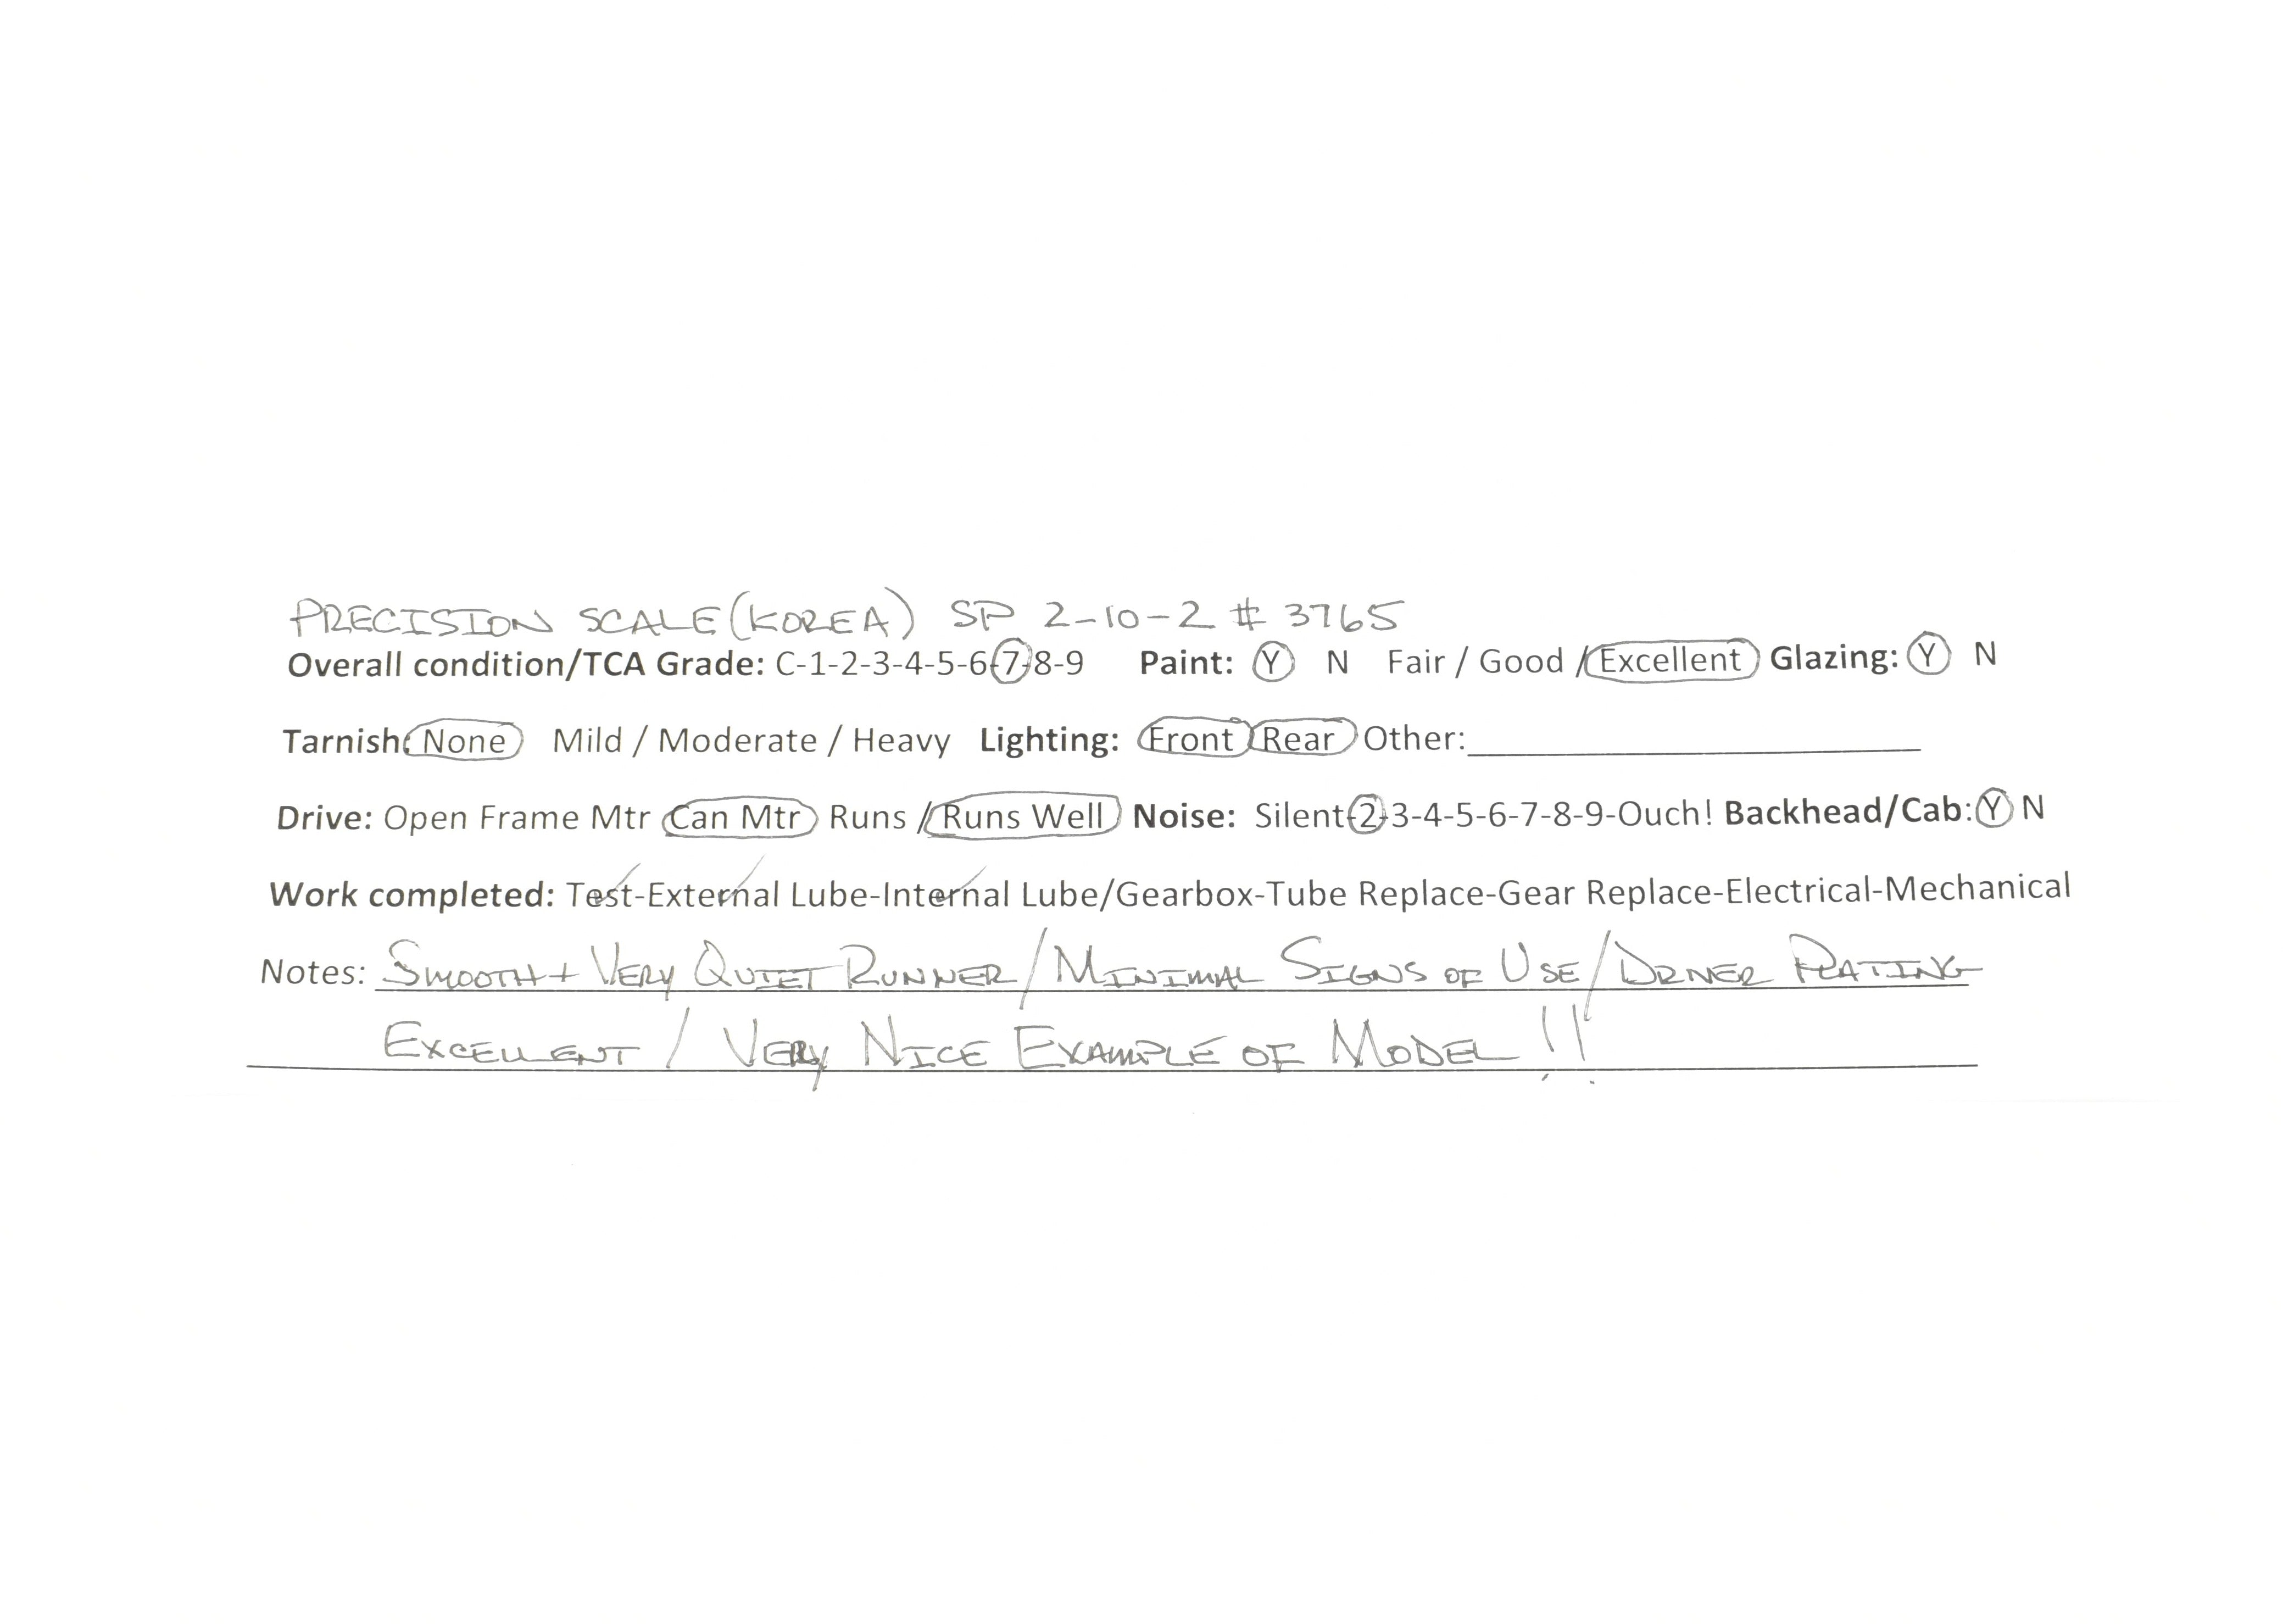 PRECISION SCALE (KOREA) SP 2-10-2 # 3765
Overall condition/TCA Grade: C-1-2-3-4-5-6-7-8-9 Paint: Y N Fair / Good / Excellent Glazing: Y N
Tarnish: None Mild / Moderate / Heavy Lighting: Front Rear Other:
Drive: Open Frame Mtr Can Mtr Runs / Runs Well Noise: Silent-2-3-4-5-6-7-8-9-Ouch! Backhead/Cab: Y N
Work completed: Test-External Lube-Internal Lube/Gearbox-Tube Replace-Gear Replace-Electrical-Mechanical
Notes: SMOOTH + VERY QUIET RUNNER / MINIMAL SIGNS OF USE / DRIVER PLATING
EXCELLENT / VERY NICE EXAMPLE OF MODEL !!